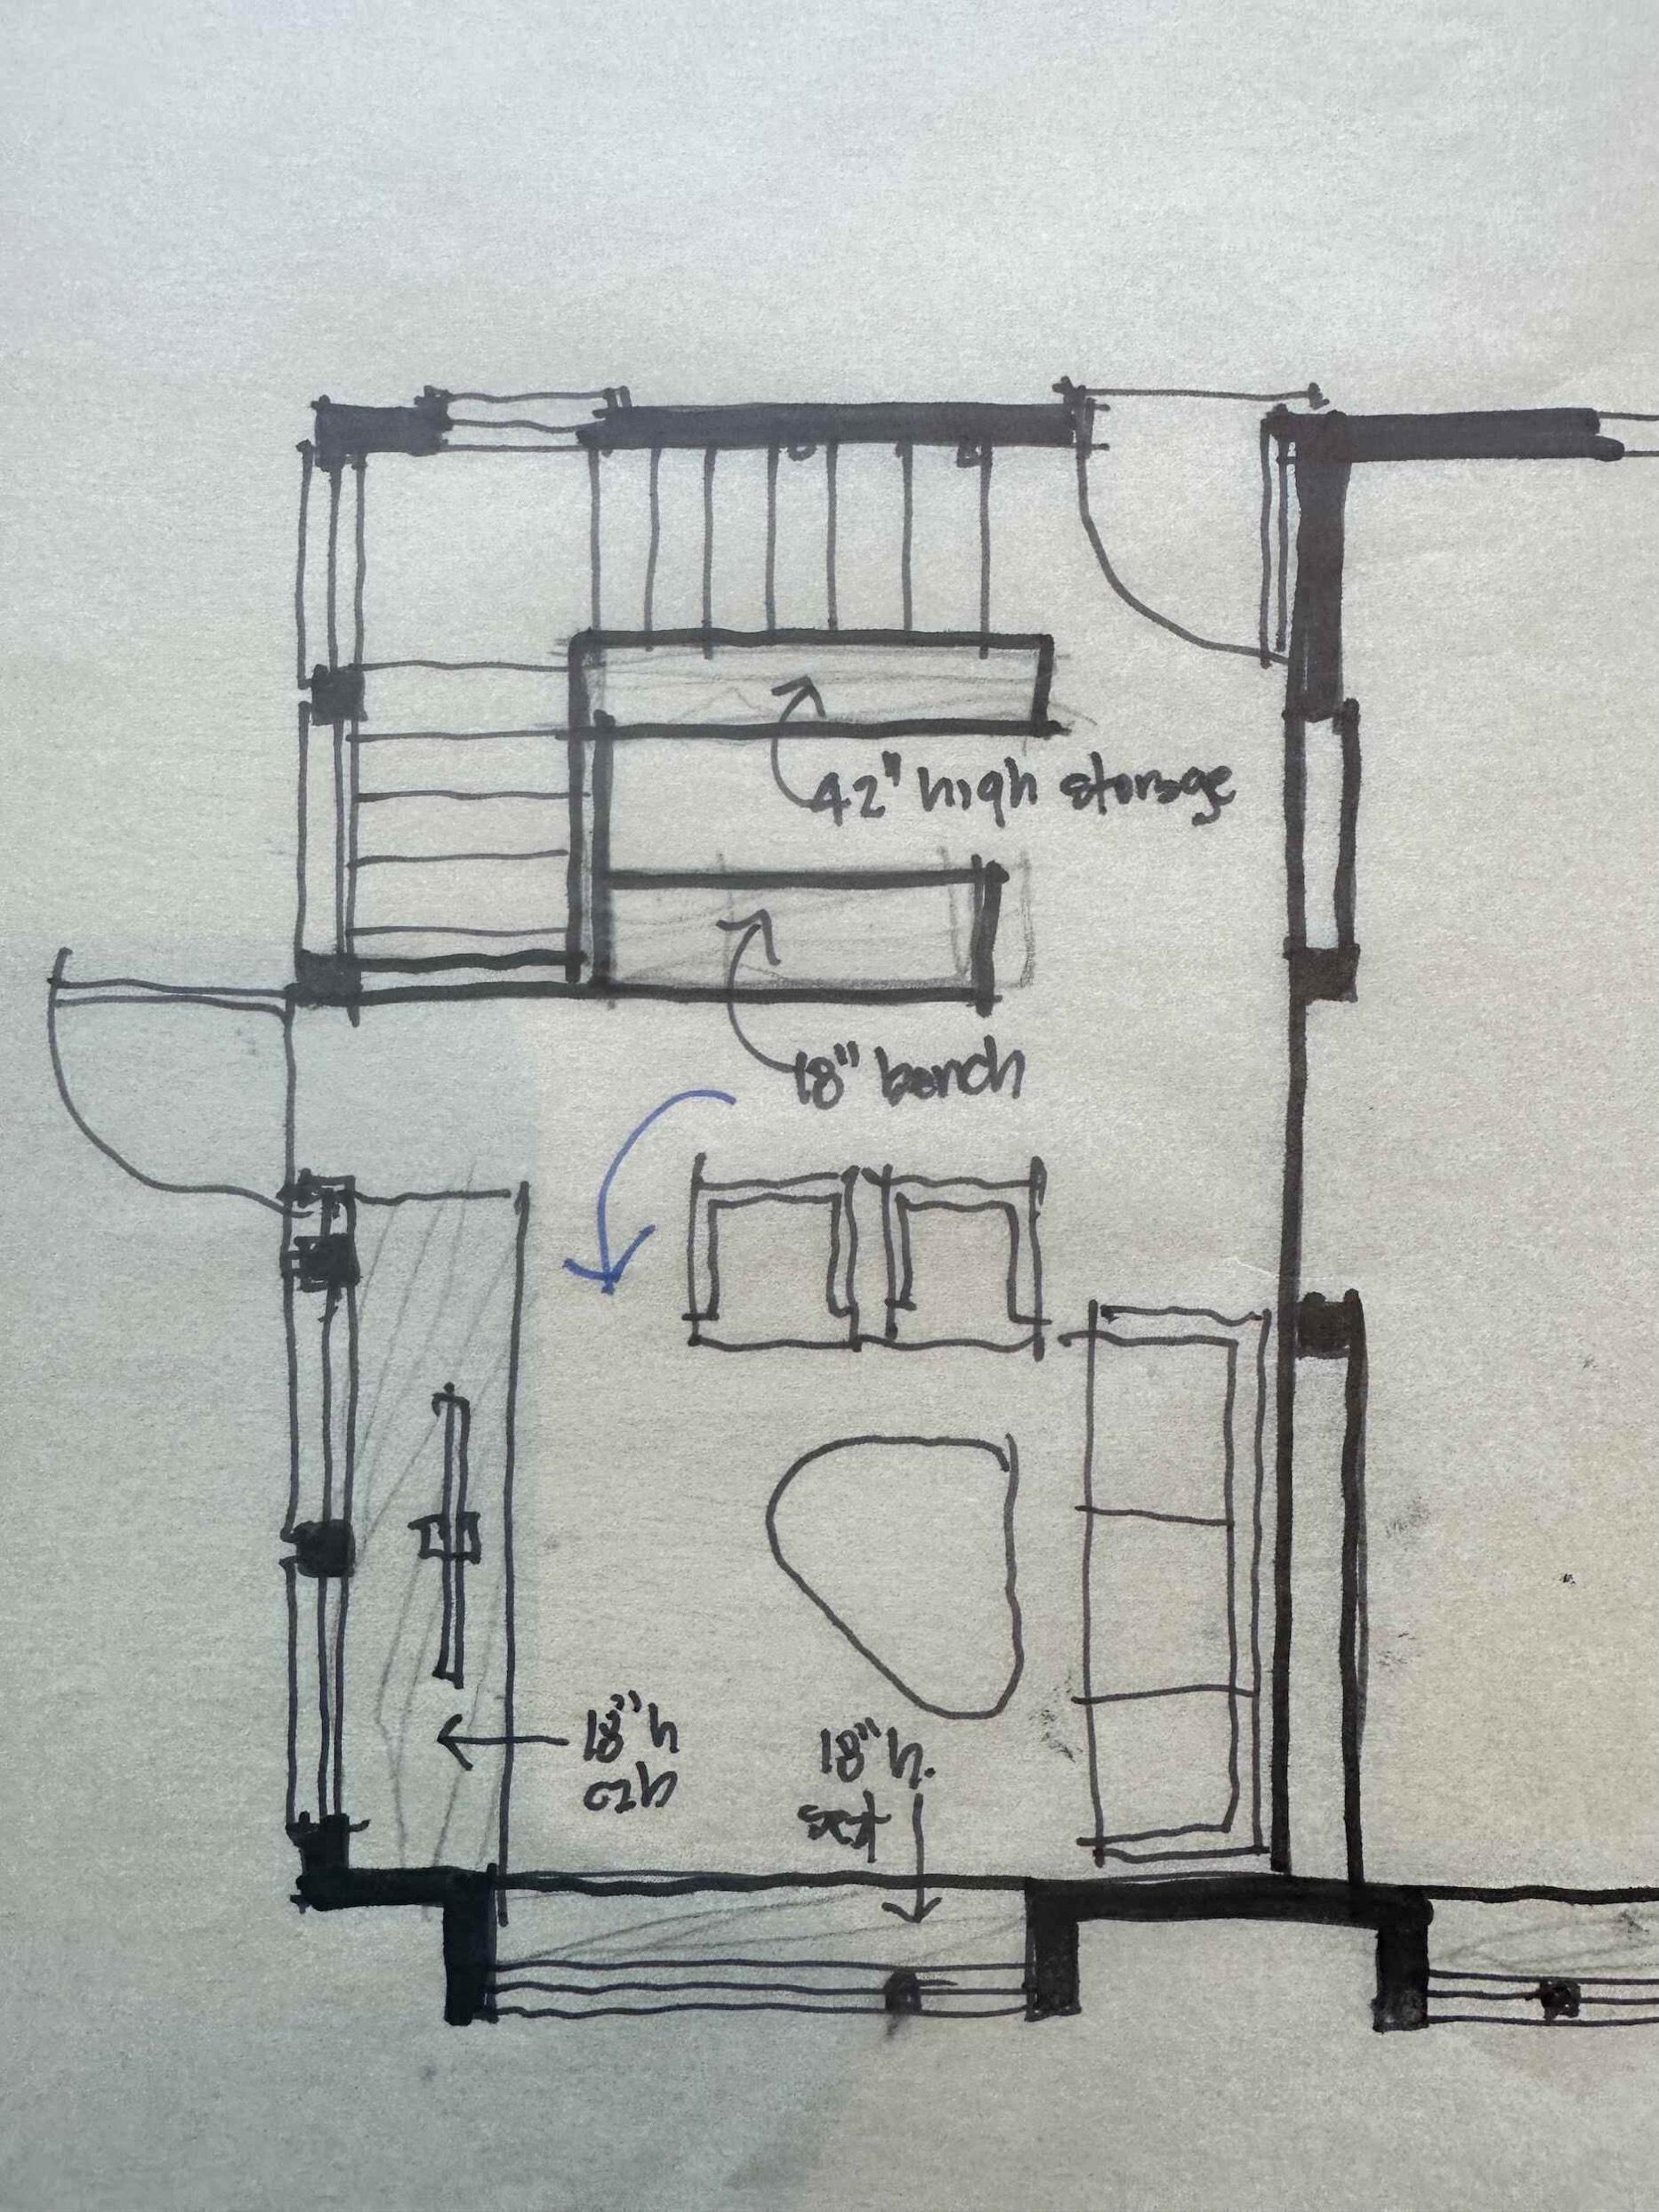 42" high storage
18" bench
18"h
cab
18"h.
seat